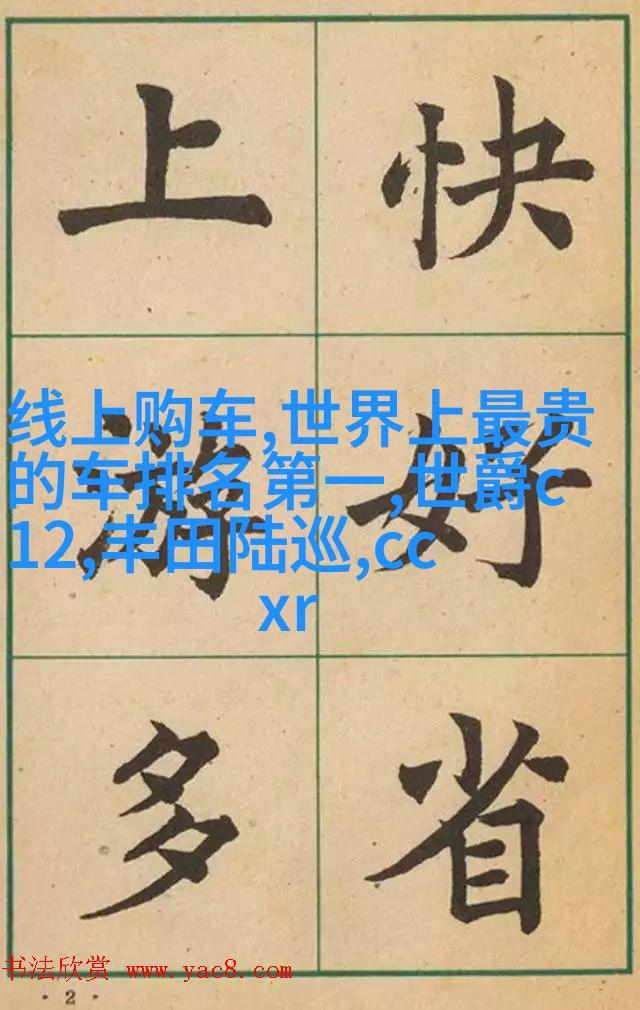 上 快
线上购车,世界上最贵
的车排名第一,世爵c
12,丰田陆巡,cc
xr
游 好
多 省
书法欣赏 www.yac8.com
· 2 ·